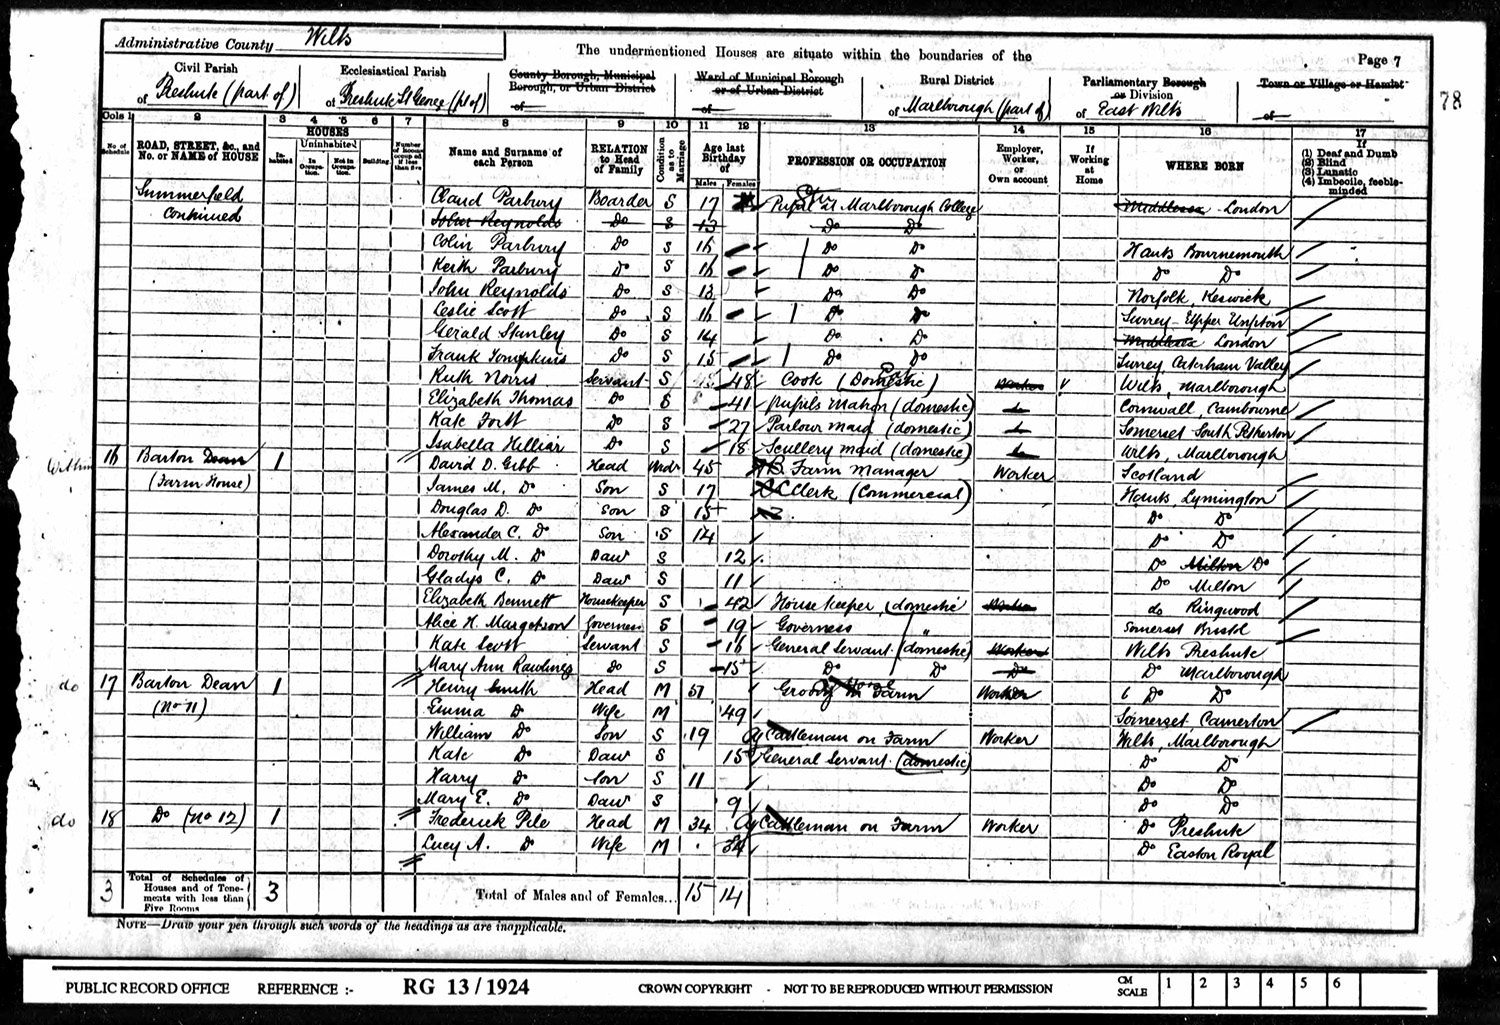 Administrative County Wilts
The undermentioned Houses are situate within the boundaries of the
Page 7
78
Civil Parish of Preshute (part of)
Ecclesiastical Parish of Preshute St George (pt of)
County Borough, Municipal Borough, or Urban District of
Ward of Municipal Borough or of Urban District of
Rural District of Marlborough (part of)
Parliamentary Borough or Division of East Wilts
Town or Village or Hamlet of
Cols 1 2 3 4 5 6 7 8 9 10 11 12 13 14 15 16 17
No. of Schedule
ROAD, STREET, &c., and No. or NAME of HOUSE
HOUSES
Inhabited
Uninhabited
In Occupation.
Not in Occupation.
Building.
Number of Rooms occupied if less than five
Name and Surname of each Person
RELATION to Head of Family
Condition as to Marriage
Age last Birthday of
Males Females
PROFESSION OR OCCUPATION
Employer, Worker, or Own account
If Working at Home
WHERE BORN
If
(1) Deaf and Dumb
(2) Blind
(3) Lunatic
(4) Imbecile, feeble-minded
Summerfield Claud Parbury Boarder S 17 Pupil at Marlborough College Middlesex London
continued John Reynolds Do S 13 Do Do
Colin Parbury Do S 16 Do Do Hants Bournemouth
Keith Parbury Do S 16 Do Do Do Do
John Reynolds Do S 13 Do Do Norfolk, Keswick
Leslie Scott Do S 16 Do Do Surrey Upper
Gerald Stanley Do S 14 Do Do Middlesex London
Frank Tompkins Do S 15 Do Do Surrey Caterham Valley
Ruth Norris Servant S 48 Cook (Domestic) Worker Wilts, Marlborough
Elizabeth Thomas Do S 41 Pupils Matron (domestic) Cornwall, Cambourne
Kate Fort Do S 27 Parlour maid (domestic) Somerset South Petherton
Isabella Hilliar Do S 18 Scullery maid (domestic) Wilts, Marlborough
Within 16 Barton Dean 1 David D. Gibb Head Wdr 45 Farm Manager Worker Scotland
(Farm House) James M. Do Son S 17 Clerk (Commercial) Hants, Lymington
Douglas D. Do Son S 15 Do Do
Alexander C. Do Son S 14 Do Do
Dorothy M. Do Daur S 12 Do Milton Do
Gladys C. Do Daur S 11 Do Milton
Elizabeth Bennett Housekeeper S 42 Housekeeper (domestic Worker do Ringwood
Alice H. Margetson Governess S 19 Governess Somerset Bristol
Kate Scott Servant S 16 General Servant (domestic) Worker Wilts Preshute
Mary Ann Rawlings Do S 15 Do Do Do Do Marlborough
do 17 Barton Dean 1 Henry Smith Head M 51 Groom on Farm Worker Do Do
(No 11) Emma Do Wife M 49 Somerset Camerton
William Do Son S 19 Cattleman on Farm Worker Wilts, Marlborough
Kate Do Daur S 15 General Servant (domestic) Do Do
Harry Do Son S 11 Do Do
Mary E. Do Daur S 9 Do Do
do 18 Do (No 12) 1 Frederick Pile Head M 34 Cattleman on Farm Worker Do Preshute
Lucy A. Do Wife M 34 Do Easton Royal
3 Total of Schedules of Houses and of Tenements with less than Five Rooms 3 Total of Males and of Females... 15 14
NOTE—Draw your pen through such words of the headings as are inapplicable.
PUBLIC RECORD OFFICE REFERENCE :- RG 13 / 1924 CROWN COPYRIGHT - NOT TO BE REPRODUCED WITHOUT PERMISSION CM SCALE 1 2 3 4 5 6